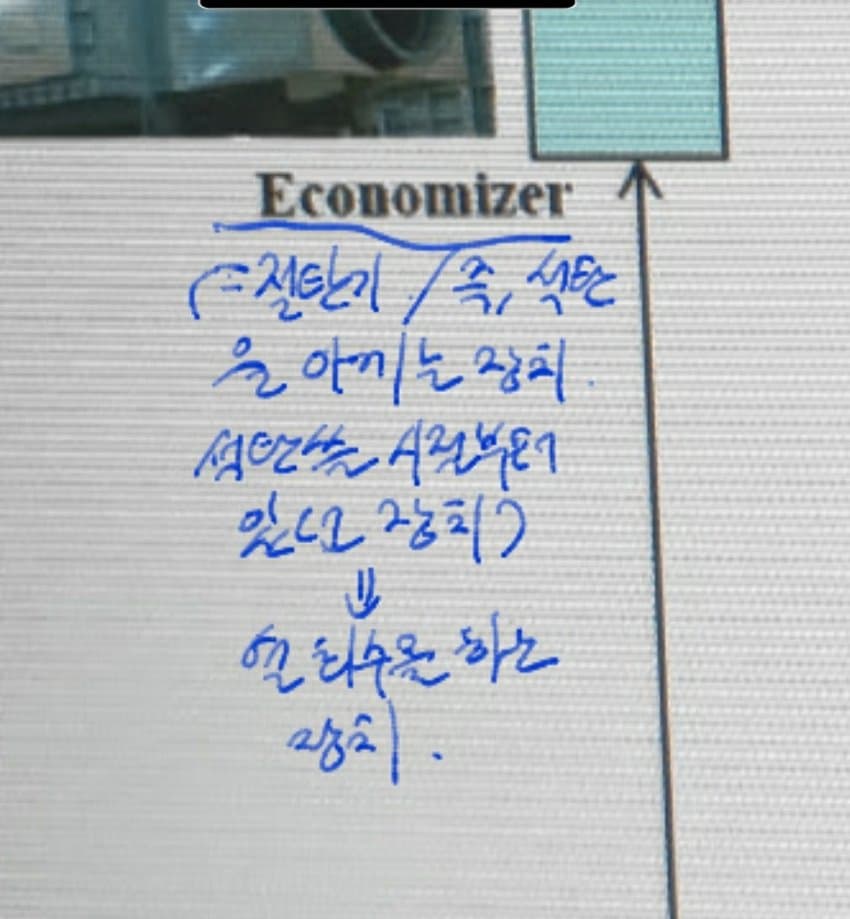 Economizer
(=절탄기 / 즉, 석탄
을 아끼는 장치.
석탄쓸 시절부터
있던 장치)
⇓
열회수를 하는
장치.